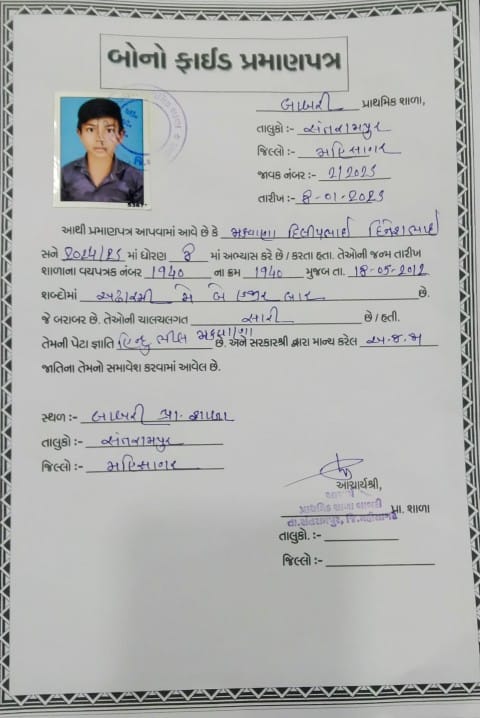 બોનો ફાઈડ પ્રમાણપત્ર
બાબરી પ્રાથમિક શાળા,
તાલુકો :- સંતરામપુર
જિલ્લો :- મહિસાગર
જાવક નંબર :- 2/2023
તારીખ :- 8-01-2023
આથી પ્રમાણપત્ર આપવામાં આવે છે કે મકવાણા દિલીપભાઈ દિનેશભાઈ
સને 2024/25 માં ધોરણ 8 માં અભ્યાસ કરે છે / કરતા હતા. તેઓની જન્મ તારીખ
શાળાના વયપત્રક નંબર 1940 ના ક્રમ 1940 મુજબ તા. 18-05-2012
શબ્દોમાં અઢારમી મે બે હજાર બાર છે.
જે બરાબર છે. તેઓની ચાલચલગત સારી છે / હતી.
તેમની પેટા જ્ઞાતિ હિન્દુ ભીલ મકવાણા છે. અને સરકારશ્રી દ્વારા માન્ય કરેલ અ.જ.જા
જાતિના તેમનો સમાવેશ કરવામાં આવેલ છે.
સ્થળ :- બાબરી પ્રા. શાળા
તાલુકો :- સંતરામપુર
જિલ્લો :- મહિસાગર
આચાર્યશ્રી,
પ્રાથમિક શાળા બાબરી પ્રા. શાળા
તા.સંતરામપુર, જિ.મહીસાગર
તાલુકો. :-
જિલ્લો :-